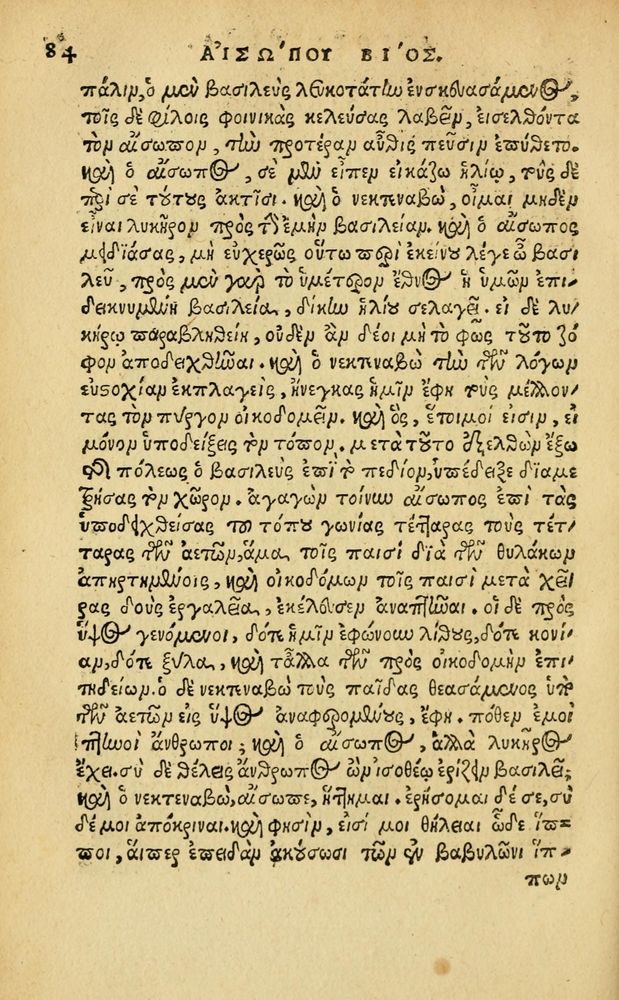 84 ΑἸΣΩΠΟΥ ΒΊΟΣ.
πάλιν, ὁ μὲν βασιλεὺς λευκοτάτην ἐνσκευασάμενος,
τοῖς δὲ φίλοις φοινικὰς κελεύσας λαβεῖν, εἰσελθόντα
τὸν αἴσωπον, τὴν προτέραν αὖθις πεῦσιν ἐπύθετο.
καὶ ὁ αἴσωπος, σὲ μὲν εἶπεν εἰκάζω ἡλίῳ, τοὺς δὲ
περί σε τούτους ἀκτῖσι. καὶ ὁ νεκτεναβὼ, οἶμαι μηδὲν
εἶναι λυκῆρον πρὸς τὴν ἐμὴν βασιλείαν. καὶ ὁ αἴσωπος
μειδιάσας, μὴ εὐχερῶς οὕτω περὶ ἐκείνου λέγε ὦ βασι
λεῦ, πρὸς μὲν γὰρ τὸ ὑμέτερον ἔθνος ἡ ὑμῶν ἐπι-
δεικνυμένη βασιλεία, δίκην ἡλίου σελαγεῖ. εἰ δὲ λυ-
κήρῳ παραβληθείη, οὐδὲν ἂν δέοι μὴ τὸ φῶς τοῦτο ζό-
φον ἀποδειχθῆναι. καὶ ὁ νεκτεναβὼ τὴν τῶν λόγων
εὐστοχίαν ἐκπλαγεὶς, ἤνεγκας ἡμῖν ἔφη τοὺς μέλλον-
τας τὸν πύργον οἰκοδομεῖν. καὶ ὃς, ἕτοιμοί εἰσιν, εἰ
μόνον ὑποδείξεις τὸν τόπον. μετὰ τοῦτο ἐξελθὼν ἔξω
τῆς πόλεως ὁ βασιλεὺς ἐπὶ τὸ πεδίον, ὑπέδειξε διαμε
τρήσας τὸν χῶρον. ἀγαγὼν τοίνυν αἴσωπος ἐπὶ τὰς
ὑποδειχθείσας τοῦ τόπου γωνίας τέτταρας τοὺς τέτ-
ταρας τῶν ἀετῶν, ἅμα τοῖς παισὶ διὰ τῶν θυλάκων
ἀπηρτημένοις, καὶ οἰκοδόμων τοῖς παισὶ μετὰ χεῖ-
ρας δοὺς ἐργαλεῖα, ἐκέλευσεν ἀναπτῆναι. οἱ δὲ πρὸς
ὕψος γενόμενοι, δότε ἡμῖν ἐφώνουν λίθους, δότε κονί-
αν, δότε ξύλα, καὶ τἄλλα τῶν πρὸς οἰκοδομὴν ἐπι-
τηδείων. ὁ δὲ νεκτεναβὼ τοὺς παῖδας θεασάμενος ὑπὸ
τῶν ἀετῶν εἰς ὕψος ἀναφερομένους, ἔφη. πόθεν ἐμοὶ
πτηνοὶ ἄνθρωποι; καὶ ὁ αἴσωπος, ἀλλὰ λυκῆρος
ἔχει. σὺ δὲ θέλεις ἄνθρωπος ὢν ἰσοθέῳ ἐρίζειν βασιλεῖ;
καὶ ὁ νεκτεναβὼ, αἴσωπε, ἥττημαι. ἐρήσομαι δέ σε, σὺ
δέ μοι ἀπόκριναι. καὶ φησὶν, εἰσί μοι θήλειαι ὧδε ἵπ-
ποι, αἵπερ ἐπειδὰν ἀκούσωσι τῶν ἐν βαβυλῶνι ἵπ-
πων